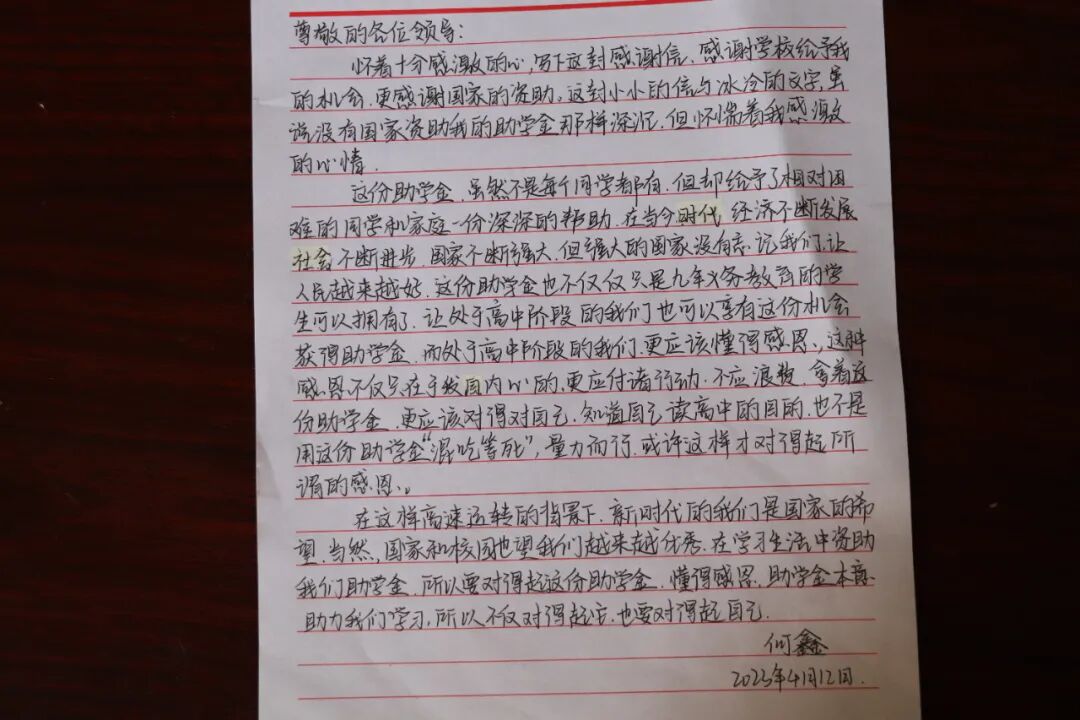 尊敬的各位领导：
怀着十分感激的心,写下这封感谢信、感谢学校给予我
的机会.更感谢国家的资助。这封小小的信与冰冷的文字,虽
说没有国家资助我的助学金那样深沉.但怀揣着我感激
的心情.
这份助学金、虽然不是每个同学都有.但却给予了相对困
难的同学和家庭一份深深的帮助.在当今时代 经济不断发展
社会不断进步.国家不断强大.但强大的国家没有忘记我们.让
人民越来越好.这份助学金也不仅仅只是九年义务教育的学
生可以拥有了.让处于高中阶段的我们也可以享有这份机会
获得助学金.而处于高中阶段的我们.更应该懂得感恩、,这种
感恩不仅只在于我内心的.更应付诸行动.不应浪费.拿着这
份助学金、更应该对得对自己.知道自己读高中的目的.也不是
用这份助学金“混吃等死”,量力而行.或许这样才对得起所
谓的感恩、。
在这样高速运转的背景下.新时代的我们是国家的希
望.当然,国家和校园也望我们越来越优秀.在学习生活中资助
我们助学金.所以要对得起这份助学金、懂得感恩.助学金本意
助力我们学习,所以不仅对得起.也要对得起自己.
何鑫
2023年4月12日.